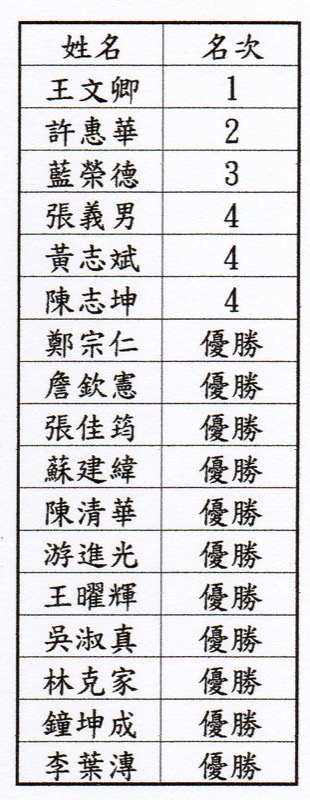 姓名 名次
王文卿 1
許惠華 2
藍榮德 3
張義男 4
黃志斌 4
陳志坤 4
鄭宗仁 優勝
詹欽憲 優勝
張佳筠 優勝
蘇建緯 優勝
陳清華 優勝
游進光 優勝
王曜輝 優勝
吳淑真 優勝
林克家 優勝
鐘坤成 優勝
李葉漙 優勝